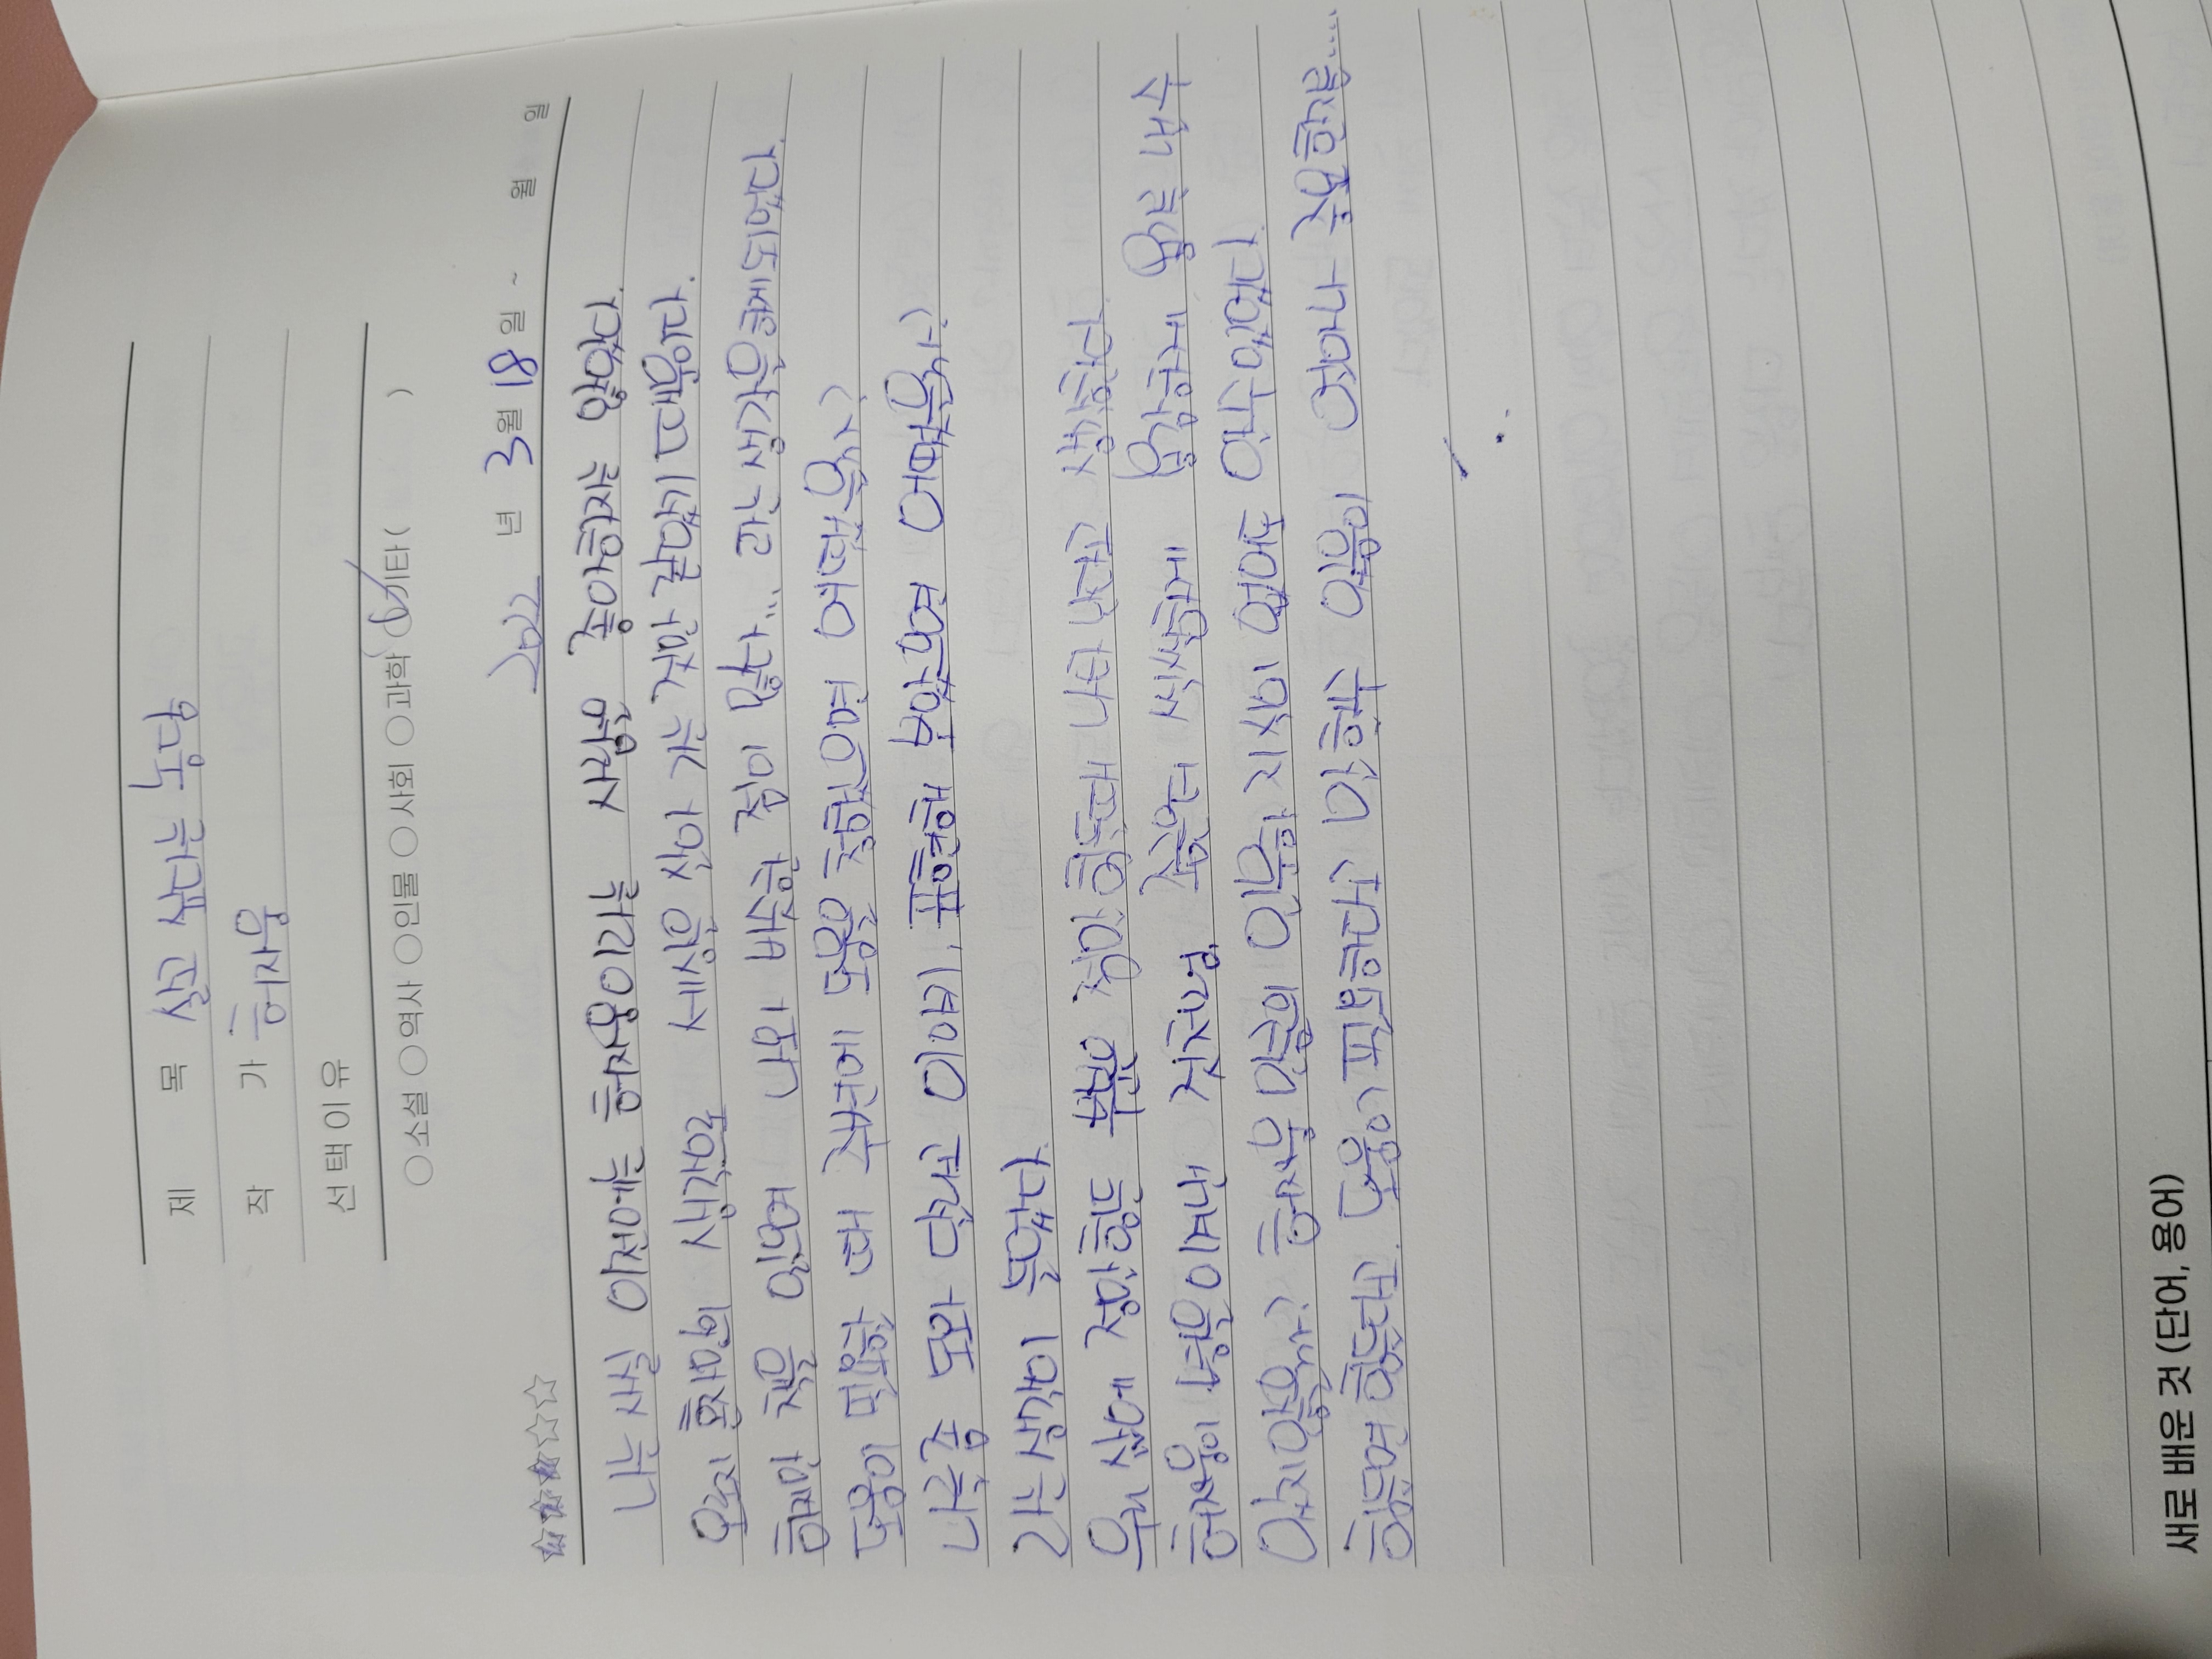 제 목 살고 싶다는 농담
작 가 허지웅
선택이유
○소설 ○역사 ○인물 ○사회 ○과학 ○기타( )
☆☆☆☆☆ 2022 년 3월 18일 ~ 월 일
나는 사실 이전에는 허지웅이라는 사람을 좋아하지는 않았다.
오로지 혼자만의 생각으로 세상을 살아 가는 것만 같았기 때문이다.
하지만 책을 읽으며 나와 비슷한 점이 많다... 라는 생각을 하게 되었다.
도움이 필요할 때 주변에 도움을 청했으면 어땠을까?
나를 좀 도와 달라고 이야기, 표현해 보았으면 어땠을까?
라는 생각이 들었다.
우리 삶에 정말 힘든 부분은 정말 힘들때 나타난다고 생각한다.
허지웅이 병을 이겨낸 것처럼, 조금은더 씩씩하게 용감하게 용기를 낼수
있지 않을까? 허지웅 만큼의 인문학 지식이 없어도 알 수 있었다.
힘들면 힘들다고, 도움이 필요하다고 말 할수 있음이 얼마나 중요한지를....
새로 배운 것 (단어, 용어)